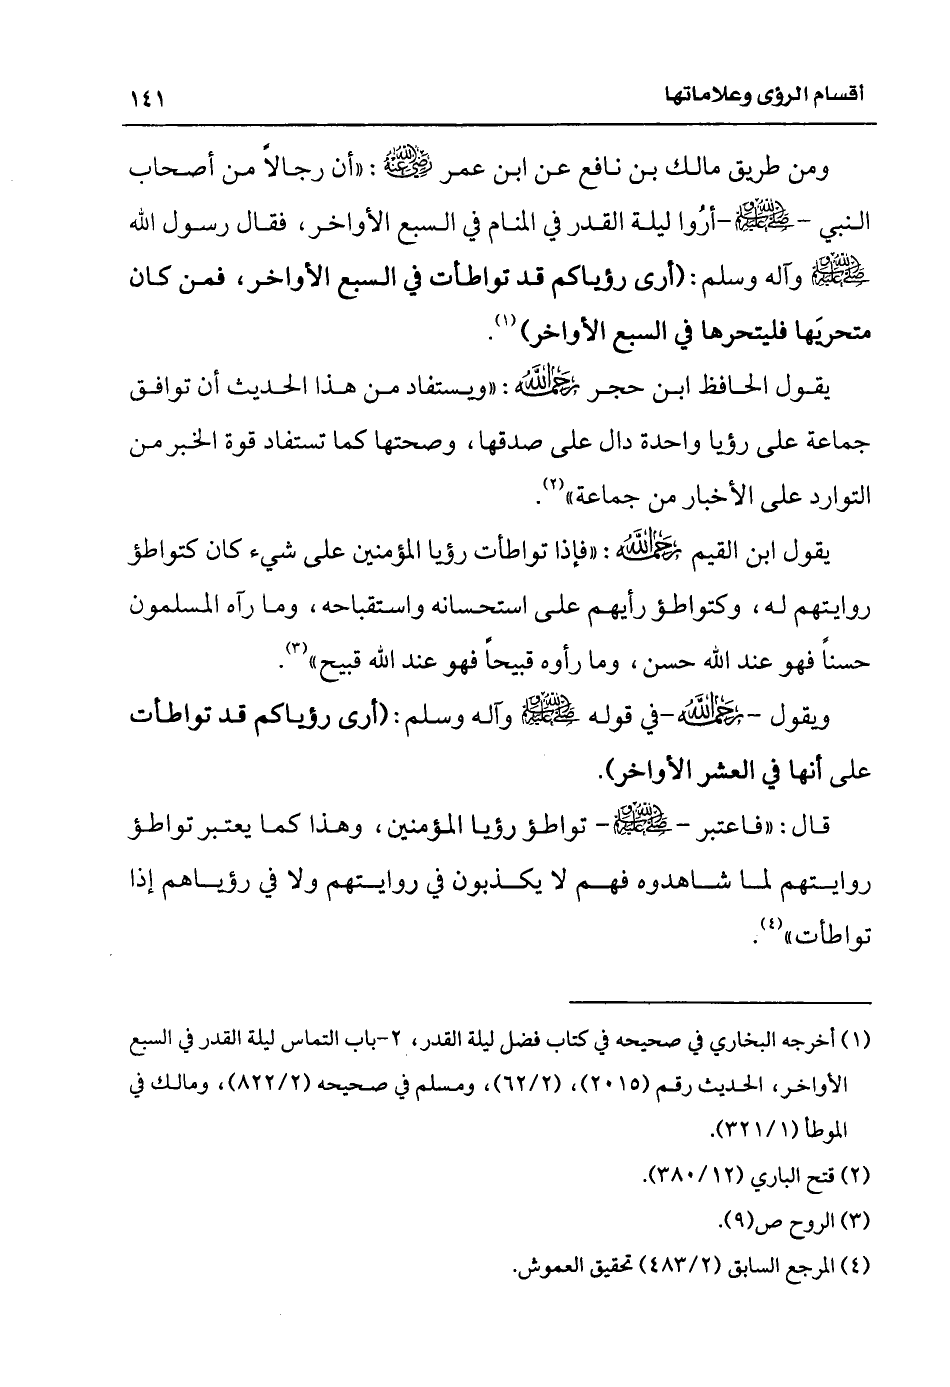 أقسام الرؤى وعلاماتها ١٤١
ومن طريق مالك بن نافع عن ابن عمر رضي الله عنه : «أن رجالاً من أصحاب
النبي - ﷺ -أرُوا ليلة القدر في المنام في السبع الأواخر، فقال رسول الله
ﷺ وآله وسلم: (أرى رؤياكم قد تواطأت في السبع الأواخر، فمن كان
متحريَها فليتحرها في السبع الأواخر)(١).
يقول الحافظ ابن حجر رحمه الله : «ويستفاد من هذا الحديث أن توافق
جماعة على رؤيا واحدة دال على صدقها، وصحتها كما تستفاد قوة الخبر من
التوارد على الأخبار من جماعة»(٢).
يقول ابن القيم رحمه الله : «فإذا تواطأت رؤيا المؤمنين على شيء كان كتواطؤ
روايتهم له، وكتواطؤ رأيهم على استحسانه واستقباحه، وما رآه المسلمون
حسناً فهو عند الله حسن، وما رأوه قبيحاً فهو عند الله قبيح»(٣).
ويقول - رحمه الله -في قوله ﷺ وآله وسلم: (أرى رؤياكم قد تواطأت
على أنها في العشر الأواخر).
قال: «فاعتبر - ﷺ - تواطؤ رؤيا المؤمنين، وهذا كما يعتبر تواطؤ
روايتهم لما شاهدوه فهم لا يكذبون في روايتهم ولا في رؤياهم إذا
تواطأت»(٤).
(١) أخرجه البخاري في صحيحه في كتاب فضل ليلة القدر، ٢-باب التماس ليلة القدر في السبع
الأواخر، الحديث رقم (٢٠١٥)، (٦٢/٢)، ومسلم في صحيحه (٨٢٢/٢)، ومالك في
الموطأ (٣٢١/١).
(٢) فتح الباري (٣٨٠/١٢).
(٣) الروح ص(٩).
(٤) المرجع السابق (٤٨٣/٢) تحقيق العموش.